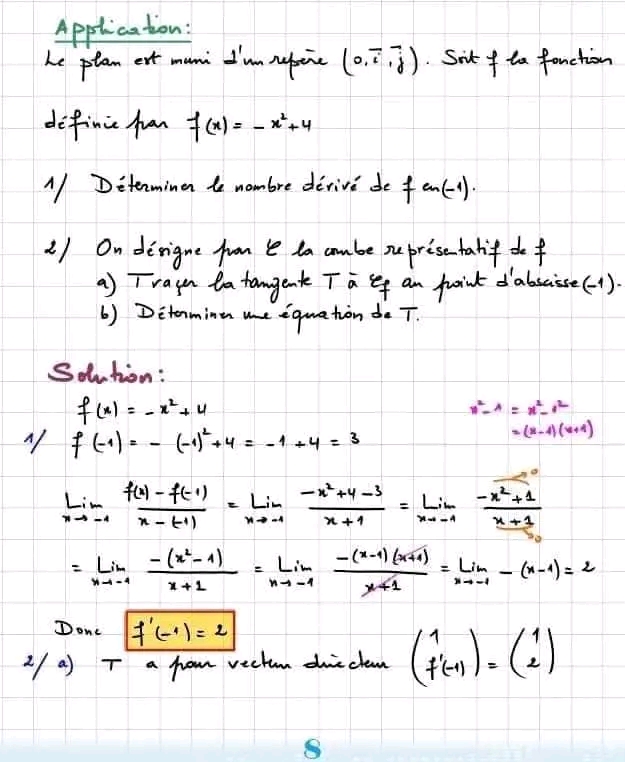 Application:
Le plan est muni d'un repère (o, i⃗, j⃗). Soit f la fonction
définie par f(x) = -x² + 4
1/ Déterminer le nombre dérivé de f en (-1).
2/ On désigne par C la courbe représentatif de f
a) Traçer la tangente T à Cf au point d'abscisse (-1).
b) Déterminer une équation de T.
Solution:
f(x) = -x² + 4
x² - 1 = x² - 1²
= (x-1)(x+1)
1/ f(-1) = -(-1)² + 4 = -1 + 4 = 3
Lim x→-1 (f(x) - f(-1))/(x - (-1)) = Lim x→-1 (-x² + 4 - 3)/(x + 1) = Lim x→-1 (-x² + 1)/(x + 1) →0 →0
= Lim x→-1 (-(x² - 1))/(x + 1) = Lim x→-1 (-(x-1)(x+1))/(x+1) = Lim x→-1 -(x-1) = 2
Donc f'(-1) = 2
2/ a) T a pour vecteur directeur (1 f'(-1)) = (1 2)
8